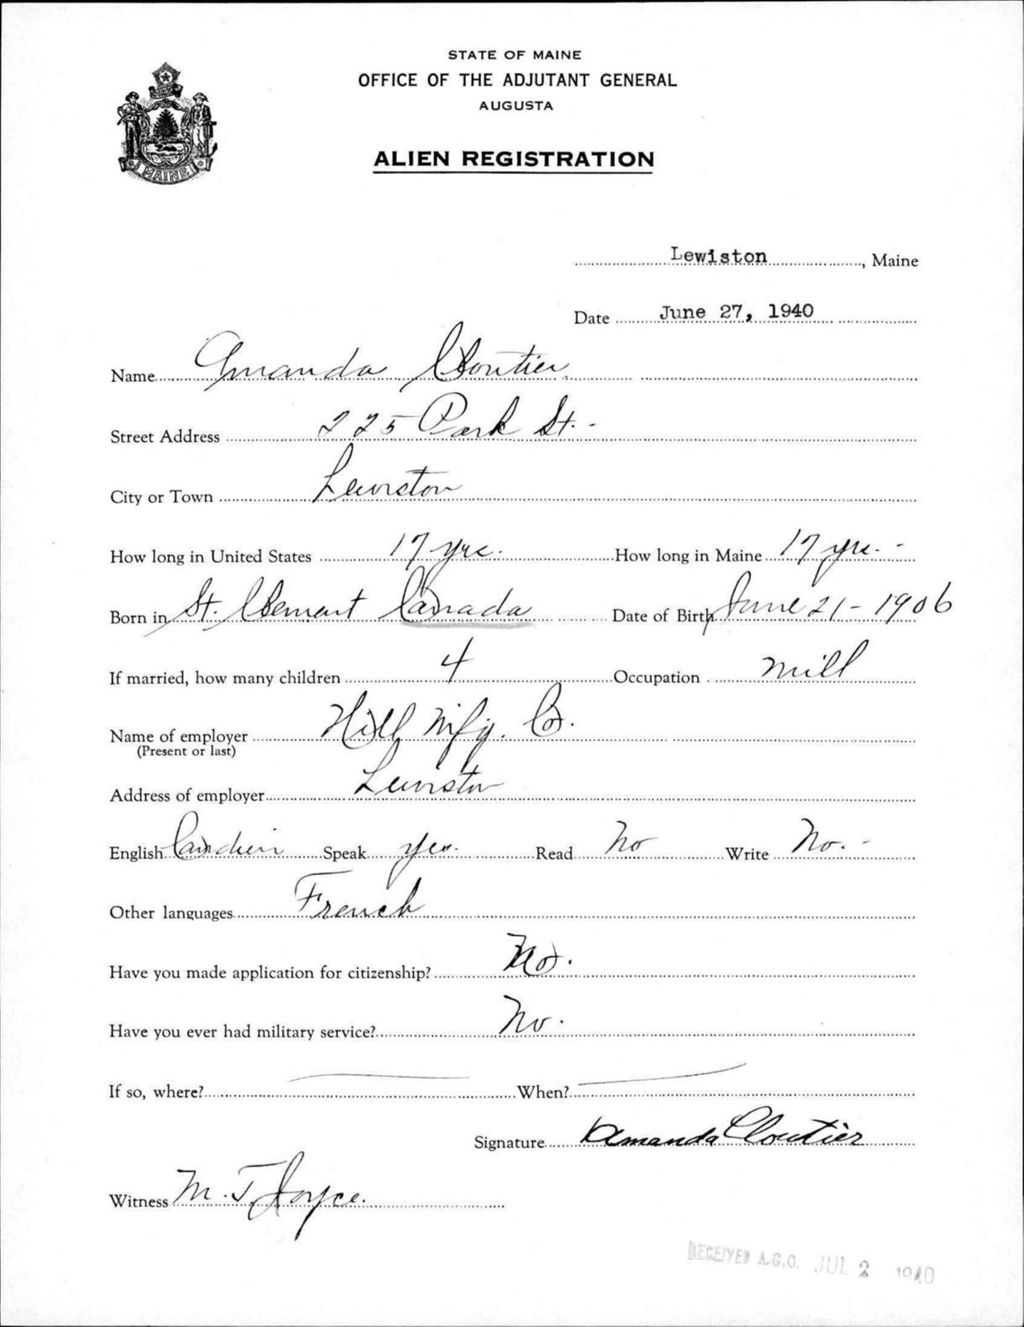 STATE OF MAINE
OFFICE OF THE ADJUTANT GENERAL
AUGUSTA
ALIEN REGISTRATION
MAINE
Lewiston, Maine
Date June 27, 1940
Name Amanda Cloutier
Street Address 225 Park St. -
City or Town Lewiston
How long in United States 17 yrs. How long in Maine 17 yrs. -
Born in St. Clemant Canada Date of Birth June 21 - 1906
If married, how many children 4 Occupation mill
Name of employer Hill Mfg. Co.
(Present or last)
Address of employer Lewiston
English Speak yes. Read No Write No. -
Other languages French
Have you made application for citizenship? No.
Have you ever had military service? No.
If so, where? When?
Signature Amanda Cloutier
Witness M. J. Joyce.
RECEIVED A.G.O. JUL 2 1940